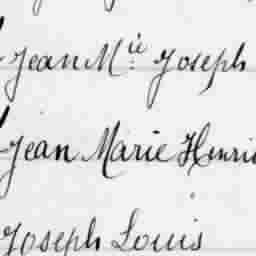 Jean Mie Joseph
Jean Marie Henri
Joseph Louis